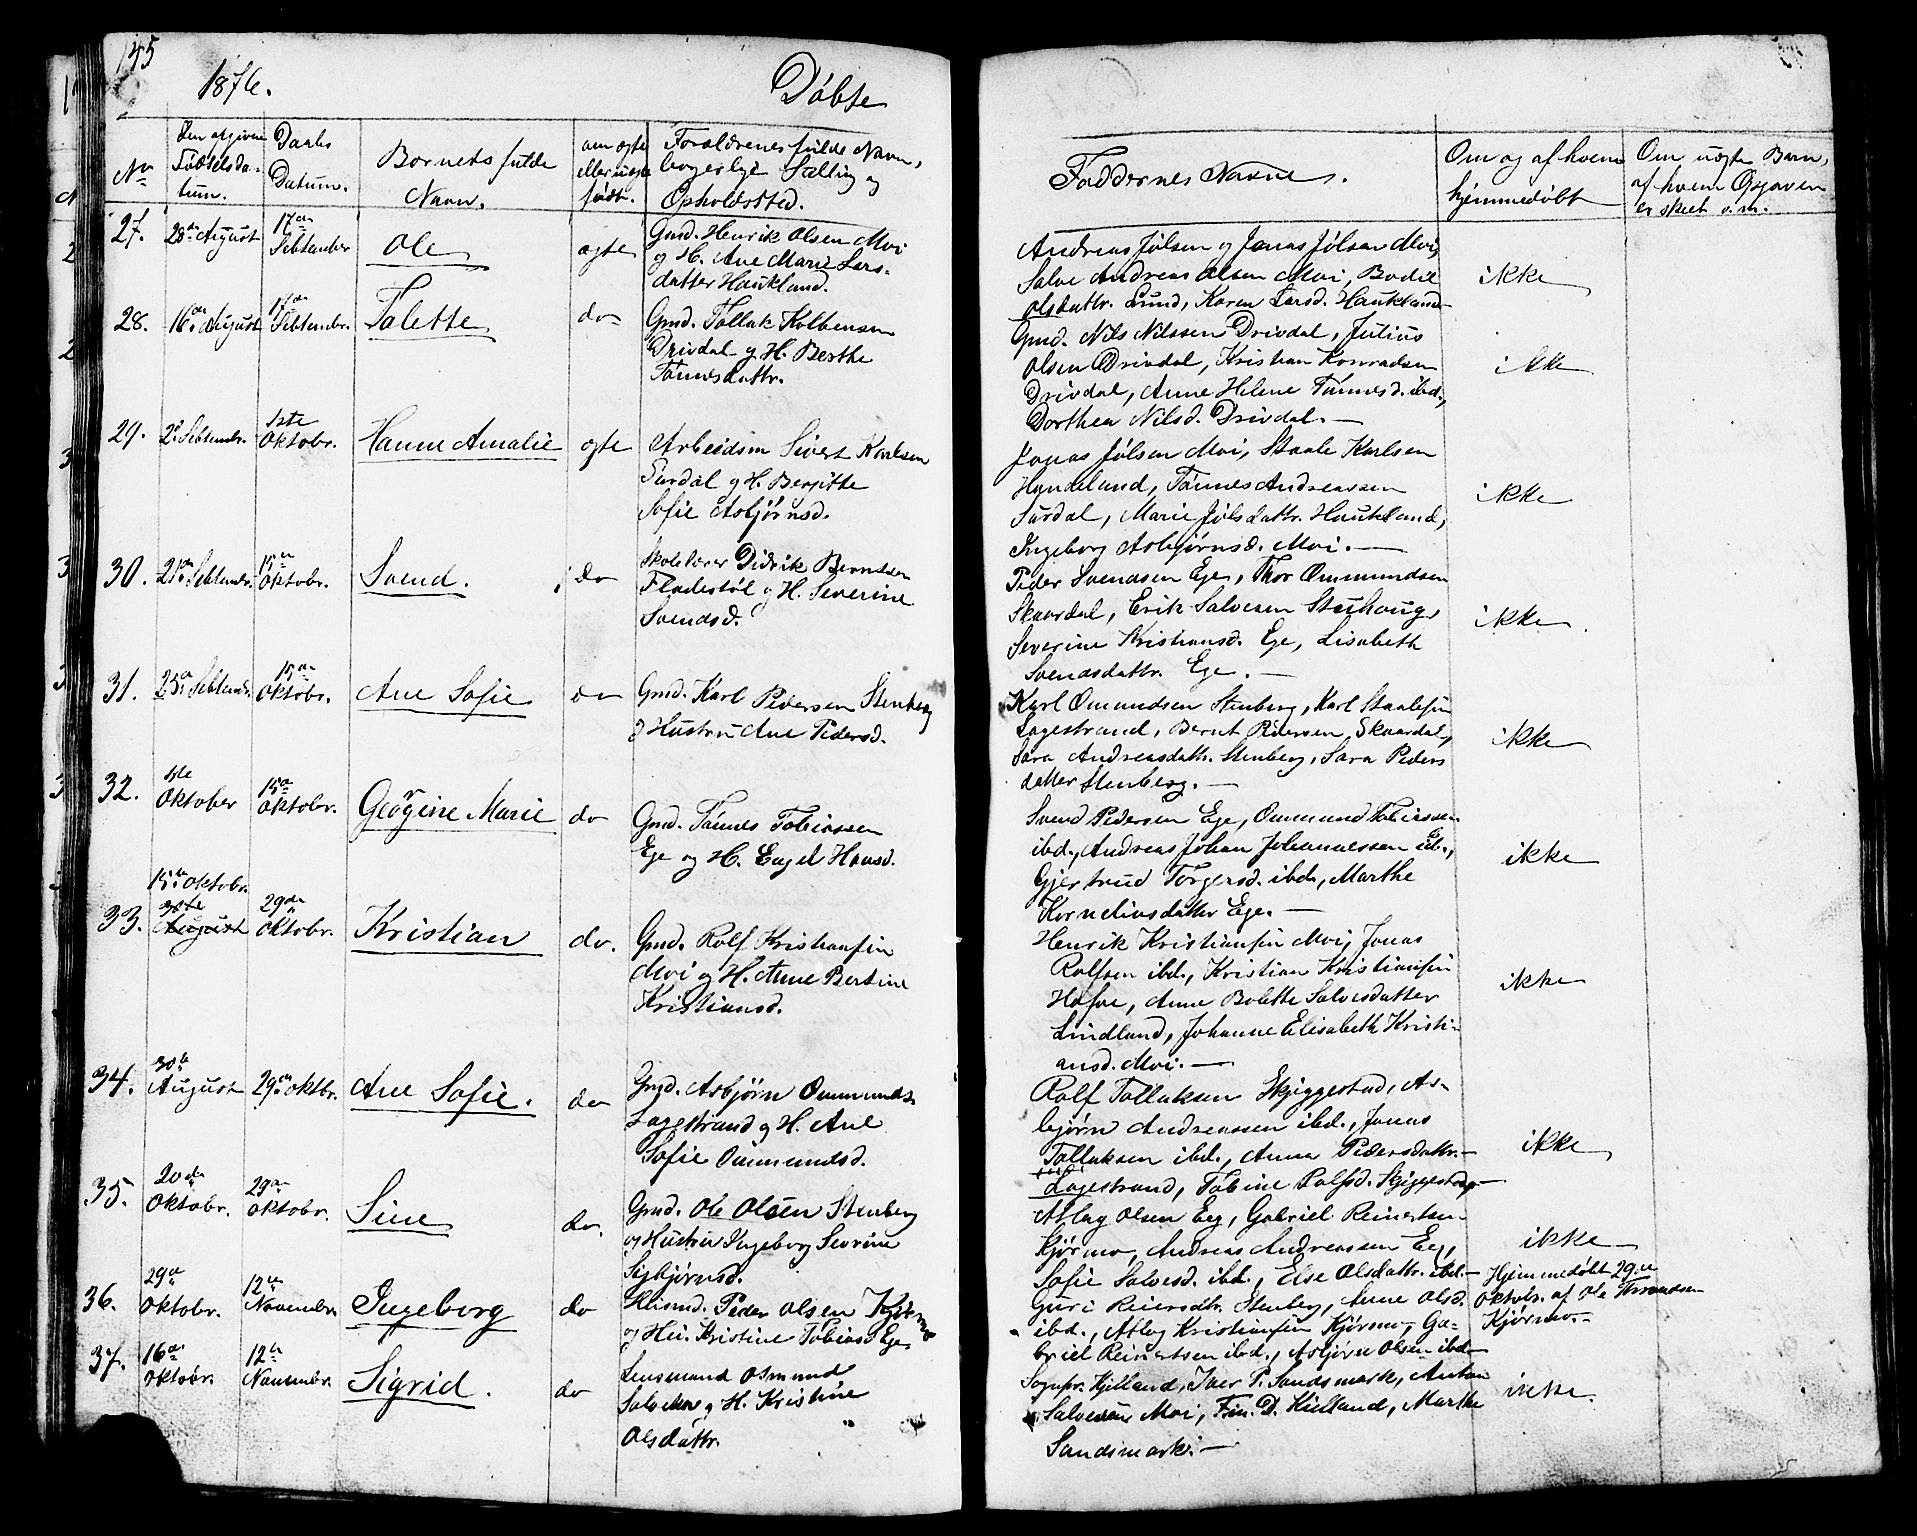 145
1876.
Døbte
No
Den opgivne Fødselsda-tum.
Daabs Datum.
Barnets fulde Navn.
om ægte eller uægte født.
Forældrenes fulde Navn, borgerlige Stilling og Opholdssted.
Faddernes Navne.
Om og af hvem hjemmedøbt
Om uægte Barn, af hvem Opgaven er skeet o.m.
27.
28de August
17de Septembr
Ole
ægte
Gmd. Henrik Olsen Moi
og H. Ane Marie Lars-
datter Haukland.
Andreas Jølsen og Jonas Jølsen Moi,
Salve Andreas Olsen Moi, Bodil
Olsdattr. Lund, Karen Larsd. Haukland
ikke
28.
16de August
17de Septembr.
Talette
do
Gmd. Tollak Kolbensen
Drivdal og H. Berthe
Tønnesdattr.
Gmd. Nils Nilssen Drivdal, Julius
Olsen Drivdal, Kristian Konradsen
Drivdal, Anne Helene Tønnesd. ibd.,
Dorthea Nilsd. Drivdal.
ikke
29.
2d. Septembr.
1ste Oktobr.
Hanne Amalie
ægte
Arbeidsm Sivert Karlsen
Surdal og H. Bergitte
Sofie Asbjørnsd.
Jonas Jølsen Moi, Staale Karlsen
Handeland, Tønnes Andreassen
Surdal, Marie Jølsdattr. Haukland,
Ingeborg Asbjørnsd. Moi.
ikke
30.
21de Septembr.
15de Oktobr.
Svend.
do
Skolelærer Didrik Berntsen
Fladestøl og H. Severine
Svendsd.
Peder Svendsen Ege, Thor Ommundsen
Skaardal, Erik Salvesen Stuhoug,
Severine Kristiansd. Ege, Lisabeth
Svendsdattr. Ege.
ikke
31.
25de Septembr.
15de Oktobr.
Ane Sofie
do
Gmd. Karl Pedersen Stenberg
og Hustru Ane Pedersd.
Karl Omundsen Stenberg, Karl Staalesen
Lagestrand, Bernt Pedersen Skaardal,
Sara Andreasdattr. Stenberg, Sara Peders
datter Stenberg.
ikke
32.
1ste Oktober
15de Oktobr.
Georgine Marie
do
Gmd. Tønnes Tobiassen
Ege og H. Engel Hansd.
Svend Pedersen Ege, Ommund Tobiassen
ibd., Andreas Johan Johannessen ibd.,
Gjertrud Torgersd. ibd., Marthe
Korneliusdatter Ege.
ikke
33.
15de Oktobr.
30te August
29de Oktobr.
Kristian
do.
Gmd. Rolf Kristiansen
Moi og H. Anne Bertine
Kristiansd.
Henrik Kristiansen Moi, Jonas
Rolfsen ibd., Kristian Kristiansen
Hafsø, Anne Bolette Salvesdatter
Lindland, Johanne Elisabeth Kristi-
ansd. Moi.
ikke
34.
30te August
29de Oktbr.
Ane Sofie.
do
Gmd. Asbjørn Ommunds.
Lagestrand og H. Ane
Sofie Ommundsd.
Rolf Tollaksen Skjeggestad, As-
bjørn Andreassen ibd., Jonas
Tollaksen ibd., Anna Pedersdattr.
Lagestrand, Tobine Rolfsd. Skjeggestad
ikke
35.
20de Oktobr.
29de Oktobr.
Sine
do.
Gmd. Ole Olsen Stenberg
og Hustru Ingeborg Sevrine
Sigbjørnsd.
Atlag Olsen Eeg, Gabriel Reinertsen
Kjørmo, Andreas Andreassen Eeg,
Sofie Salvesd. ibd., Else Olsdattr. ibd.
ikke
36.
29de Oktobr.
12te Novembr.
Ingeborg
do
Peder Olsen Kjørmo
og Hu. Kristine Tobiasd Ege
Guri Reiersdtr. Stenberg, Anne Olsd.
ibd., Atlag Kristiansen Kjørmo, Ga-
briel Reinertsen ibd., Asbjørn Olsen ibd.
Hjemmedøbt 29de
Oktobr. af Ole
Kjørmo.
37.
16de Oktobr.
12te Novembr.
Sigrid.
do
Lensmand Osmund
Salvesen og H. Kristine
Olsdattr.
Sognepr. Kjelland, Iver P. Sandsmark, Anton
Salvesen Moi, D. Kielland, Marthe
Sandsmark.
ikke.